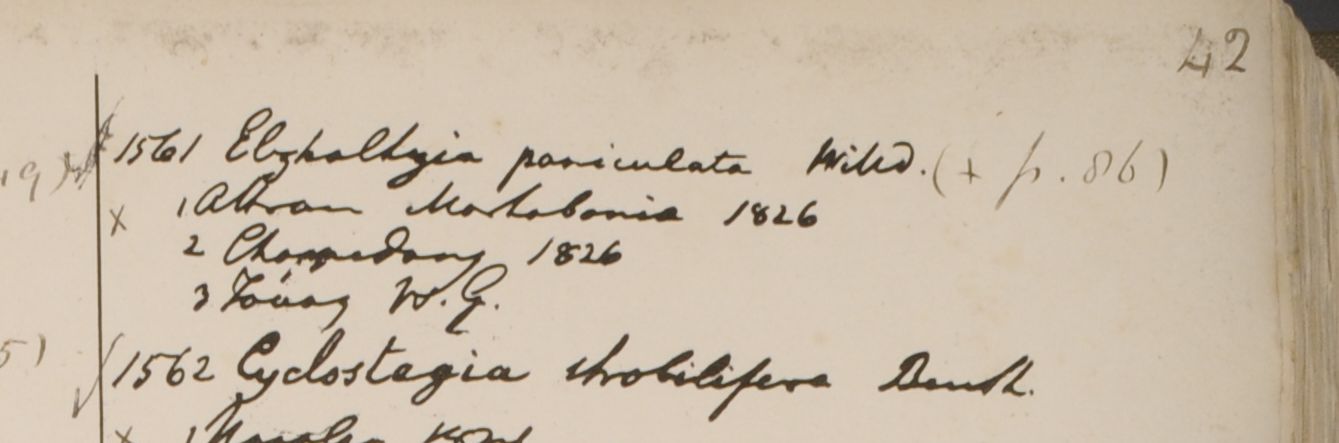 42
1561 Elzholtzia paniculata Willd. (+ p. 86)
x 1 Atran Martabania 1826
2 Chappedong 1826
3 Tavoy W. G.
1562 Cyclostegia strobilifera Benth.
x 1